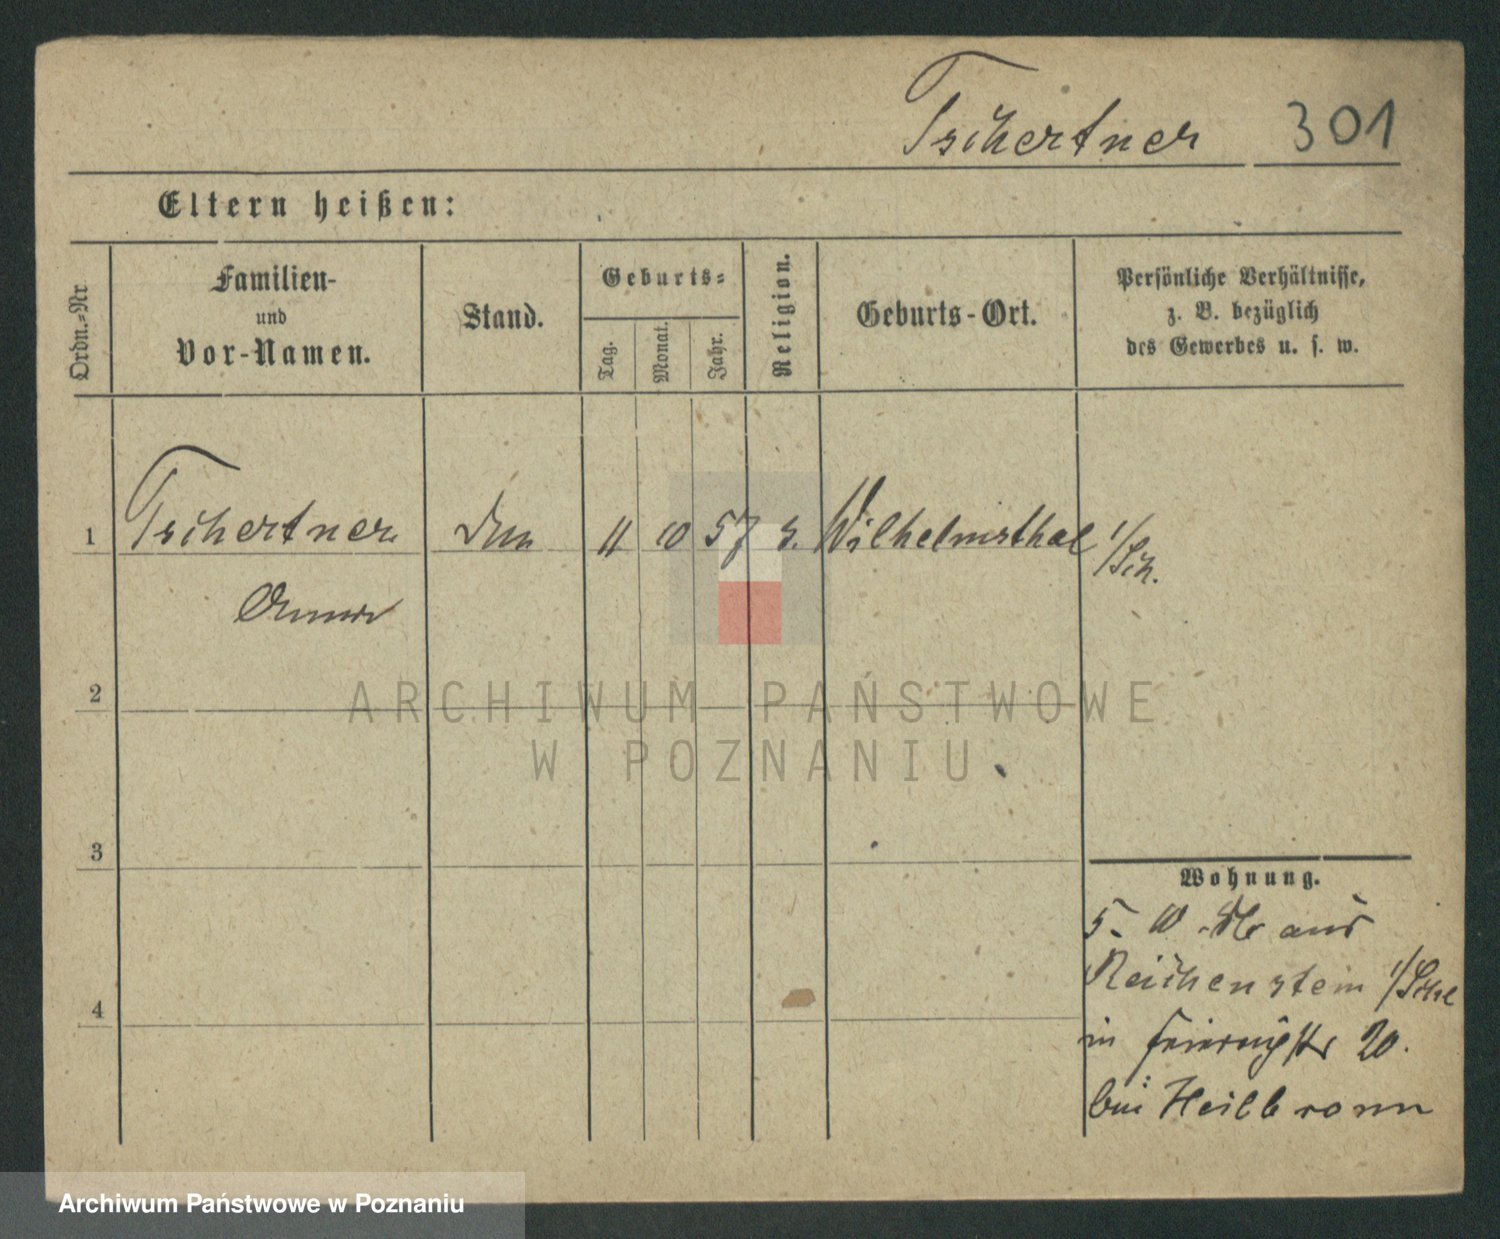 Tschertner 301
Eltern heißen:
Ordn.-Nr
Familien-
und
Vor-Namen.
Stand.
Geburts-
Tag.
Monat.
Jahr.
Religion.
Geburts-Ort.
Persönliche Verhältnisse,
z. B. bezüglich
des Gewerbes u. s. w.
1 Tschertner 11 10 57 Wilhelmsthal
Anna
2
ARCHIWUM PAŃSTWOWE
W POZNANIU
3
Wohnung.
5. aus
Reichenstein
4
in 20.
bei Heilbronn
Archiwum Państwowe w Poznaniu